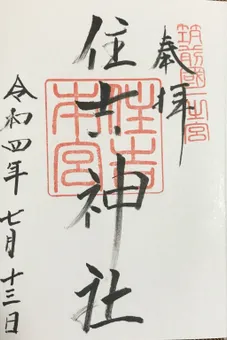 筑前國一宮
奉拝
住吉神社
住吉本宮
令和四年七月十三日